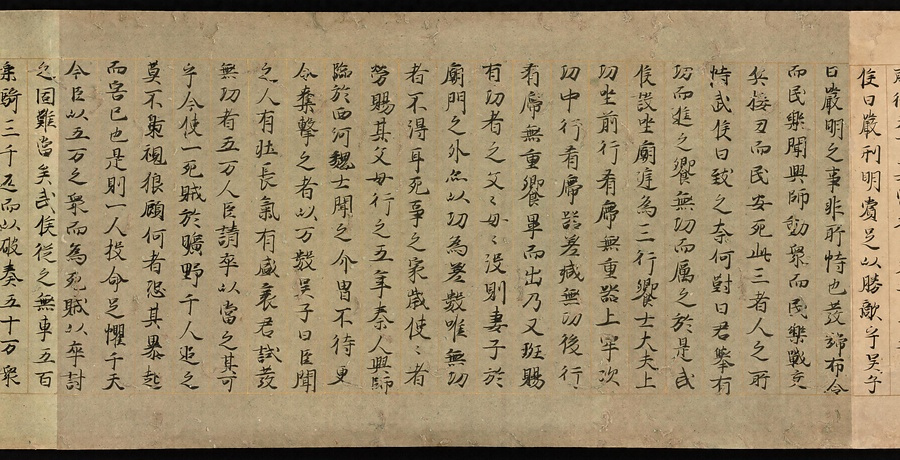 侯曰嚴刑明賞足以勝敵乎吳子
曰嚴明之事非所恃也發號布令
而民樂聞興師動衆而民樂戰交
兵接刃而民安死此三者人之所
恃武侯曰致之奈何對曰君擧有
功而進之饗無功而厲之於是武
侯設坐廟廷為三行饗士大夫上
功坐前行肴席無重器上牢次
功中行肴席器差減無功後行
肴席無重饗畢而出乃又班賜
有功者之父々母々没則妻子於
廟門之外亦以功為差數唯無功
者不得耳死事之家歳使々者
勞賜其父母行之五年秦人興師
臨於西河魏士聞之介冑不待吏
令奮擊之者以万數吳子曰臣聞
之人有短長氣有盛衰君試發
無功者五万人臣請率以當之其可
乎今使一死賊於曠野千人追之
莫不梟視狼顧何者恐其暴起
而害己也是則一人投命足懼千夫
今臣以五万之衆而為死賊以率討
之固難當矣武侯從之無車五百
乘騎三千疋而以破秦五十万衆